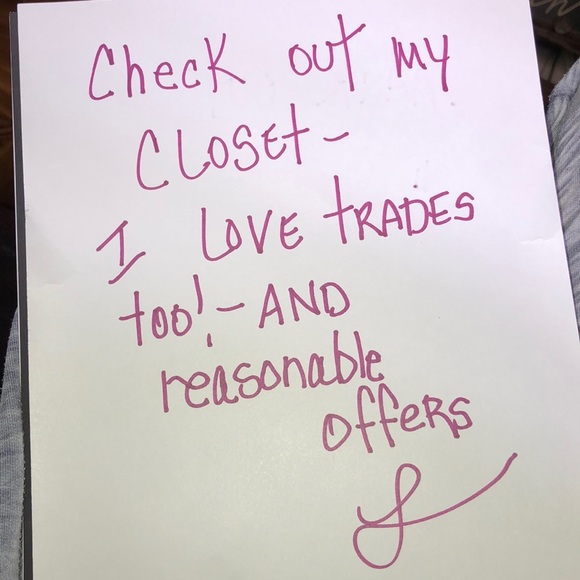 Check out my
CLOSET-
I LOVE tRADES
too! - AND
reasonable
offeRS